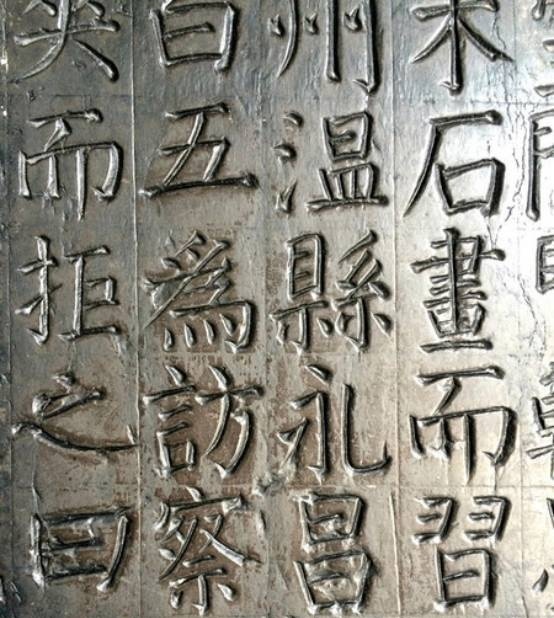 木石畫而習
州温縣永昌
白五爲訪察
而拒之曰